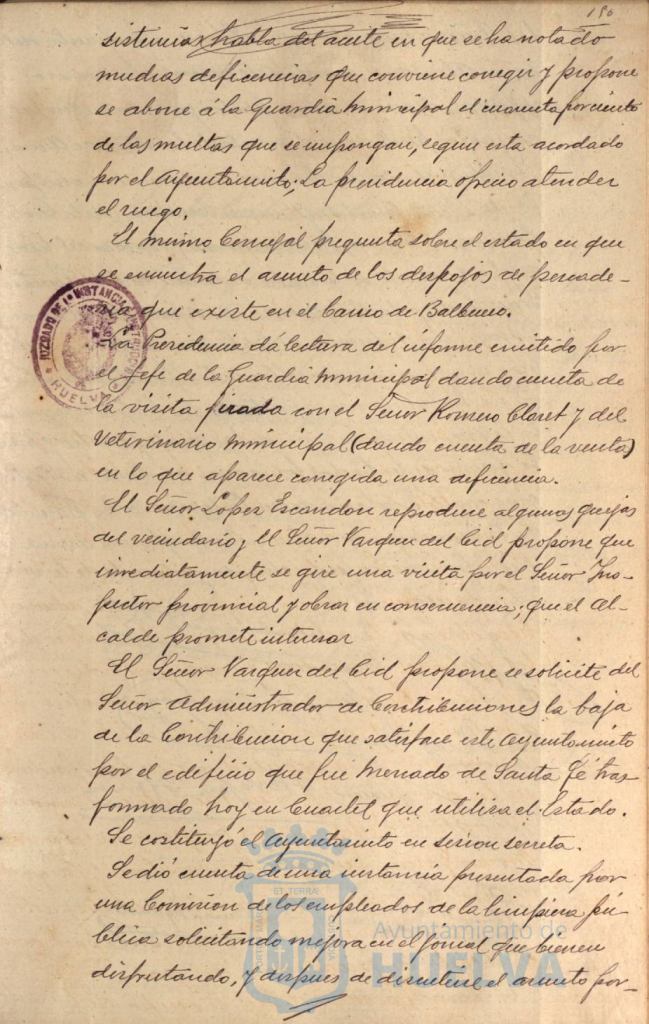 190
sistencias habla del aceite en que se ha notado
muchas deficencias que conviene coregir y propone
se abone á la Guardia Municipal el cincuenta por ciento
de las multas que se impongan, segun esta acordado
por el Ayuntamiento; La presidencia ofrecio atender
el ruego.
El mismo Concejal pregunta sobre el estado en que
se encuentra el asunto de los despojos de pescade-
ria que existe en el barrio de Balbueno.
La Presidencia dá lectura del informe emitido por
el Jefe de la Guardia Municipal dando cuenta de
la visita girada con el Señor Romero Claret y del
Veterinario Municipal (dando cuenta de la venta)
en lo que aparece coregida una deficencia.
El Señor Lopez Escandon reproduce algunas quejas
del vecindario y El Señor Vazquez del Cid propone que
inmediatamente se gire una visita por el Señor Ins-
pector provincial y obrar en consecuencia; que el Al-
calde promete interesar
El Señor Vazquez del Cid propone se solicite del
Señor Administrador de Contribuciones la baja
de la Contribucion que satisface este Ayuntamiento
por el edificio que fue Mercado de Santa Fé tras-
formado hoy en Cuartel que utiliza el Estado.
Se costituyó el Ayuntamiento en sesion secreta.
Se dió cuenta de una instancia presentada por
una Comision de los empleados de la limpieza pú-
blica solicitando mejora en el jornal que bienen
disfrutando, y despues de discutirse el asunto por-
JUZGADO DE 1ª INSTANCIA
HUELVA
Ayuntamiento de
HUELVA